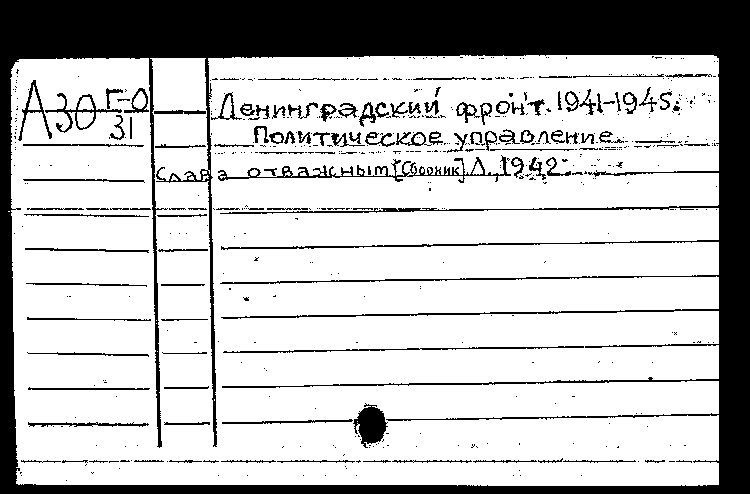 А30 Г-О
31
Ленинградский фронт. 1941-1945.
Политическое управление.
Слава отважным [Сборник] Л., 1942.